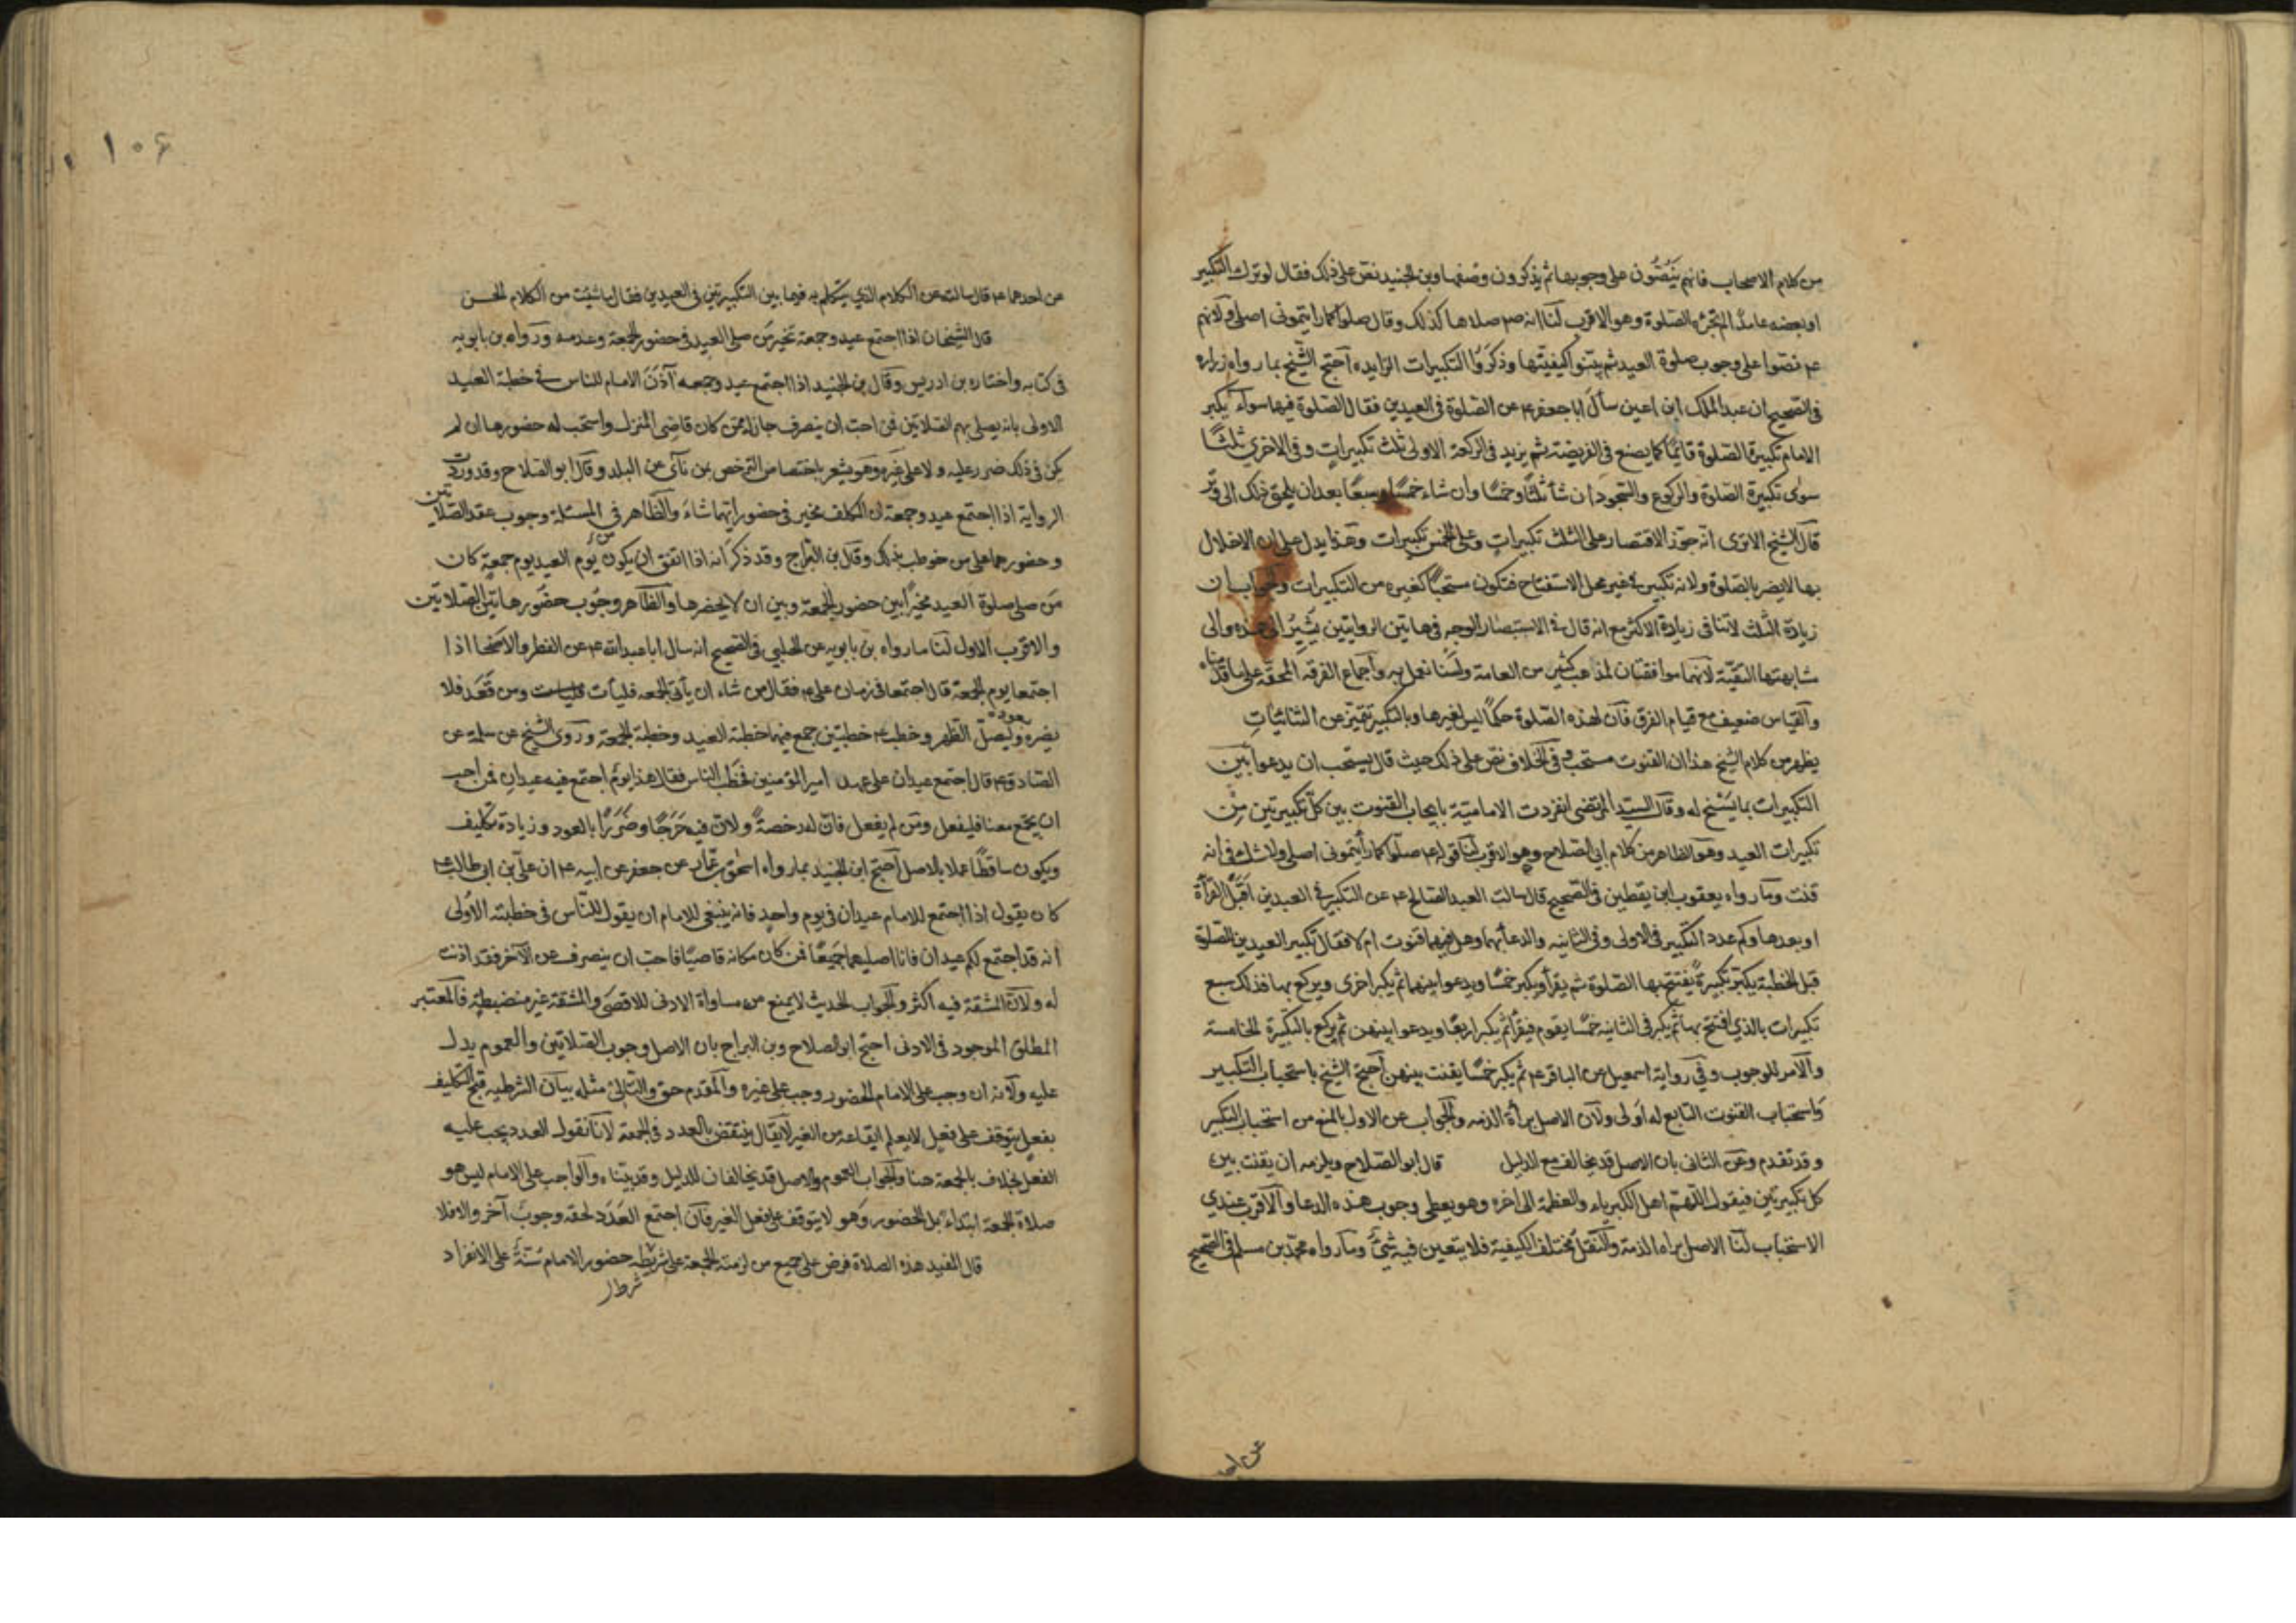 من كلام الاصحاب فانهم ينصّون على وجوبها ثم يذكرون وصفها وبن الجنيد نص على ذلك فقال لو ترك التكبير
او بعضه عامدًا لم تجزه الصلوة وهو الاقرب لنا انه ص صلاها كذلك وقال صلوا كما رايتموني اصلي ولانهم
ع م نصوا على وجوب صلوة العيد ثم بينوا كيفيتها وذكروا التكبيرات الزايده احتج الشيخ بما رواه زراره
في الصحيح ان عبد الملك ابن اعين سأل ابا جعفر ع م عن الصلوة في العيدين فقال الصلوة فيها سواء يكبر
الامام تكبيرة الصلوة قائمًا كما يصنع في الفريضة ثم يزيد في الركعة الاولى ثلث تكبيرات وفي الاخرى ثلثًا
سوى تكبيرة الصلوة والركوع والسجود ان شآ ثلثًا وخمسًا وان شاء خمسًا وسبعًا بعد ان يلحق ذلك الى وتر
قال الشيخ الا ترى انه جوّز الاقتصار على الثلث تكبيرات وعلى الخمس تكبيرات وهذا يدل على ان الاخلال
بها لا يضر بالصلوة ولانه تكبير في غير محل الاستفتاح فتكون مستحبًا كغيره من التكبيرات والجواب ان
زيادة الثلث لا تنافى زيادة الاكثر مع انه قال في الاستبصار الوجه في هاتين الروايتين يشير الى هذه والى
مشابهتها التقيّة لانهما موافقتان لمذاهب كثير من العامة ولسنا نعمل به واجماع الفرقه المحقّة على ما قدمناه
والقياس ضعيف مع قيام الفرق فان لهذه الصلوة حكمًا ليس لغيرها وبالتكبير تتميز عن الثنائيات
يظهر من كلام الشيخ هذا ان القنوت مستحب وفي الخلاف نص على ذلك حيث قال يستحب ان يدعوا بين
التكبيرات بما يسنح له وقال السيد المرتضى انفردت الامامية بايجاب القنوت بين كل تكبيرتين من
تكبيرات العيد وهو الظاهر من كلام ابي الصلاح وهو الاقرب لنا قوله ع م صلّوا كما رأيتموني اصلي ولا شك في انه
قنت وما رواه يعقوب ابن يقطين في الصحيح قال سالت العبد الصالح ع م عن التكبير في العيدين اقبل القرأة
او بعدها وكم عدد التكبير في الاولى وفي الثانيه والدعآ بينهما وهل فيهما قنوت ام لا فقال تكبير العيدين للصلوة
قبل الخطبة يكبر تكبيرة يفتتح بها الصلوة ثم يقرأ ويكبر خمسًا ويدعوا بينهما ثم يكبر اخرى ويركع بها فذلك سبع
تكبيرات بالذي افتتح بها ثم يكبر في الثانيه خمسًا يقوم فيقرأ ثم يكبر اربعًا ويدعوا بينهن ثم يركع بالتكبيرة الخامسة
والامر للوجوب وفي رواية اسمعيل عن الباقر ع م ثم يكبر خمسًا يقنت بينهن احتج الشيخ باستحباب التكبير
فاستحباب القنوت التابع له اولى ولان الاصل برأة الذمه والجواب عن الاول بالمنع من استحباب التكبير
وقد تقدم وعن الثانى بان الاصل قد يخالف مع الدليل قال ابو الصلاح ويلزمه ان يقنت بين
كل تكبيرتين فيقول اللهم اهل الكبرياء والعظمة الى اخره وهو يعطي وجوب هذه الدعا والاقرب عندي
الاستحباب لنا الاصل براه الذمة والنقل مختلف الكيفية فلا يتعين فيه شئ وما رواه محمد بن مسلم في الصحيح
عن احد
١٠۶
عن احدهما ع م قال سالته عن الكلام الذي يتكلم به فيما بين التكبيرتين في العيدين فقال ما شئت من الكلام الحسن
قال الشيخان اذا اجتمع عيد وجمعة تخير من صلى العيد في حضور الجمعة وعدمه ورواه بن بابويه
في كتابه واختاره بن ادريس وقال بن الجنيد اذا اجتمع عيد وجمعه آذن الامام للناس في خطبة العيد
الاولى بانه يصلي بهم الصلاتين فمن احب ان ينصرف جاز له ممن كان قاصي المنزل واستحب له حضورها ان لم
يكن في ذلك ضرر عليه ولا على غيره وهو يشعر باختصاص الترخص بمن نآى عن البلد وقال ابو الصلاح وقد وردت
الرواية اذا اجتمع عيد وجمعة ان المكلف مخير في حضور ايهما شاء والظاهر في المسئلة وجوب عقد الصلاتين
وحضورهما على من خوطب بذلك وقال بن البراج وقد ذكر انه اذا اتفق ان يكون يوم العيد يوم جمعة كان
من صلى صلوة العيد مخيرًا بين حضور الجمعة وبين ان لا يحضرها والظاهر وجوب حضور هاتين الصلاتين
والاقرب الاول لنا ما رواه بن بابويه عن الحلبي في الصحيح انه سال ابا عبد الله ع م عن الفطر والاضحى اذا
اجتمعا يوم الجمعة قال اجتمعا في زمان علي ع م فقال من شاء ان يأتي الجمعه فليأت ومن قعد فلا
يضره وليصل الظهر وخطب ع م خطبتين جمع فيهما خطبة العيد وخطبة الجمعة وروى الشيخ عن سلمة عن
الصادق ع م قال اجتمع عيدان على عهد امير المؤمنين فخطب الناس فقال هذا يوم اجتمع فيه عيدان فمن احب
ان يجمع معنا فليفعل ومن لم يفعل فان له رخصة ولان فيه حرجًا وضررًا بالعود وزيادة تكليف
ويكون ساقطًا عملا بالاصل احتج ابن الجنيد بما رواه اسحق بن عمّار عن جعفر عن ابيه ع م ان علي بن ابي طالب ع م
كان يقول اذا اجتمع للامام عيدان في يوم واحد فانه ينبغي للامام ان يقول للناس في خطبته الاولى
انه قد اجتمع لكم عيدان فانا اصليهما جميعًا فمن كان مكانه قاصيًا فاحب ان ينصرف عن الآخر فقد اذنت
له ولان المشقة فيه اكثر والجواب الحديث لا يمنع من مساواة الادنى للاقصى والمشقة غير منضبطة فالمعتبر
المطلق الموجود في الادنى احتج ابو الصلاح وبن البراج بان الاصل وجوب الصلاتين والعموم يدل
عليه ولانه ان وجب على الامام الحضور وجب على غيره والمقدم حق والتالي مثله بيان الشرطيه قبح التكليف
بفعل يتوقف على فعل لا يعلم ايقاعه من الغير لا يقال ينتقض بالعدد في الجمعة لانا نقول العدد يجب عليه
الفعل بخلاف الجمعة هنا والجواب العموم والاصل قد يخالفان للدليل وقد بيّناه والواجب على الامام ليس هو
صلاة الجمعة ابتداء بل الحضور وهو لا يتوقف على فعل الغير فان اجتمع العدد لحقه وجوب آخر والا فلا
قال المفيد هذه الصلاة فرض على جميع من لزمته الجمعة على شريطه حضور الامام سنة على الانفراد